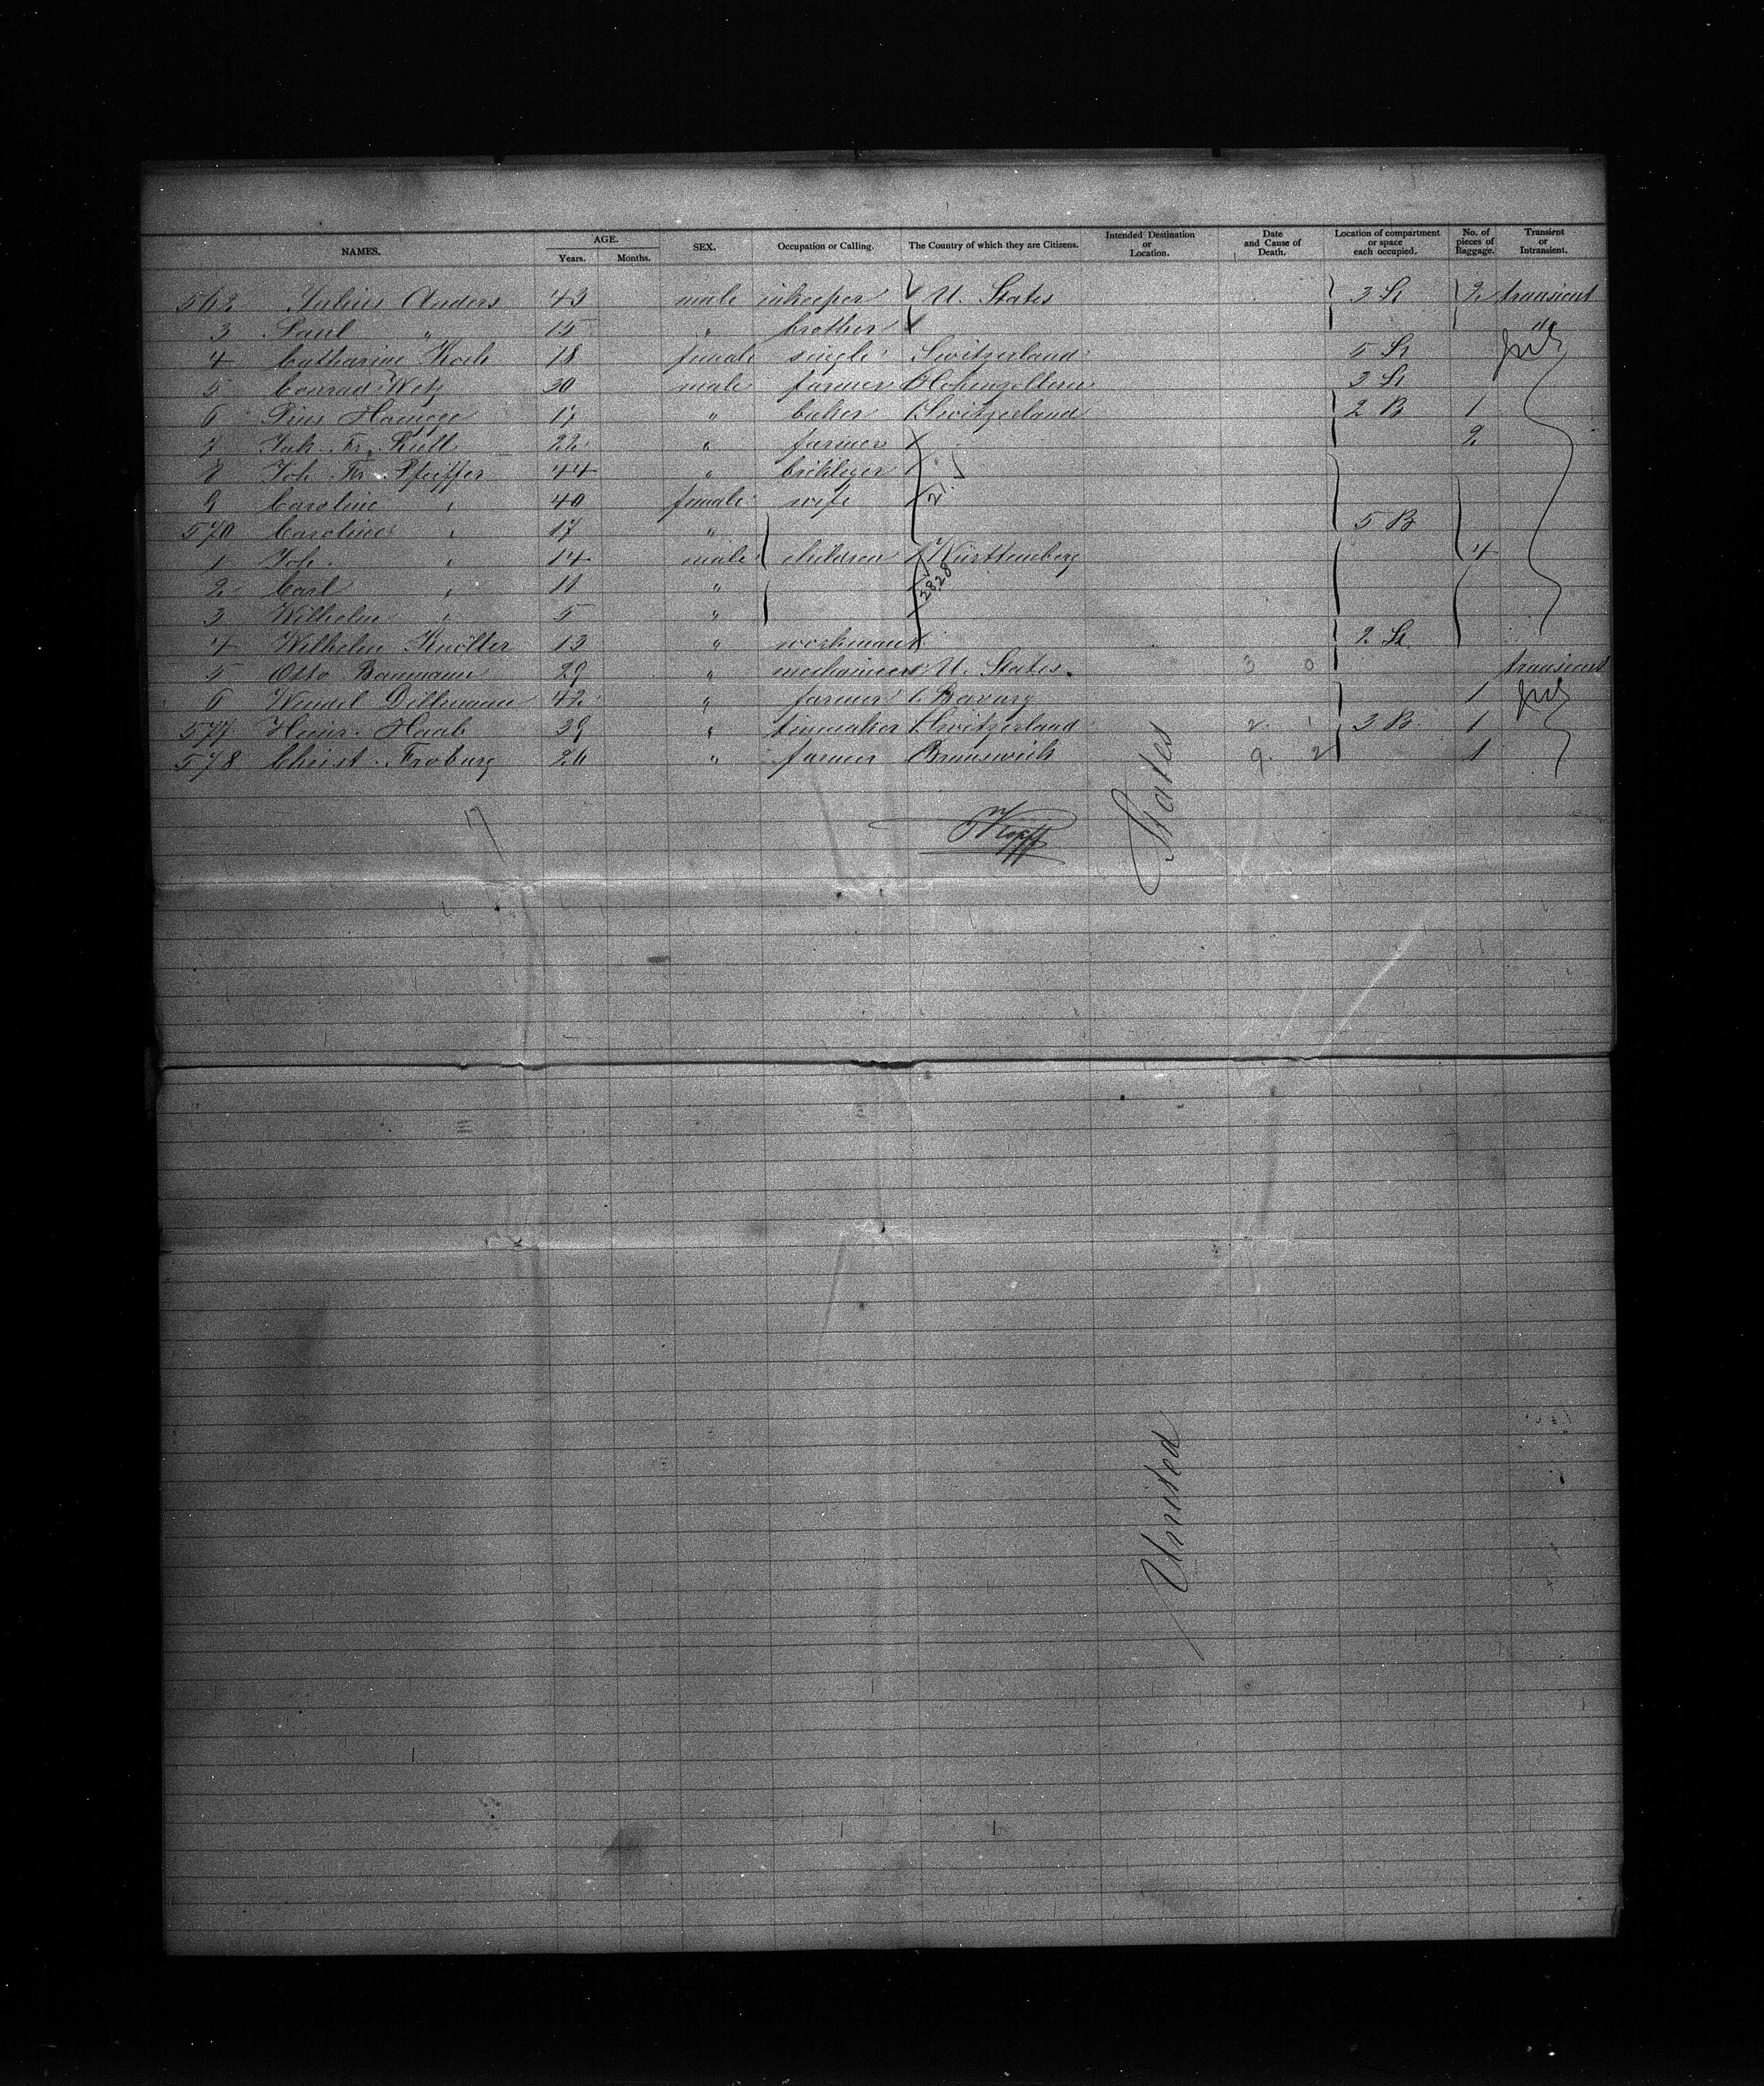 NAMES. AGE. Years. Months. SEX. Occupation or Calling. The Country of which they are Citizens. Intended Destination or Location. Date and Cause of Death. Location of compartment or space each occupied. No. of pieces of Baggage. Transient or Intransient.
562 Julius Anders 43 male inkeeper U. States 3 St 2 transient
3 Paul " 15 " brother "
4 Catharine Koch 18 female single Switzerland 5 St
5 Conrad Wetz 30 male farmer Hohenzollern 3 St
6 Pius 17 " baker Switzerland 2 B 1
7 Jak. Fr. Rull 22 " farmer 2
8 Joh. Fr. Pfeiffer 44 " 21
9 Caroline " 40 female wife
570 Caroline " 17 " 5 B
1 Joh. " 14 male children Württemberg 4
2 Carl " 11 " 2828
3 Wilhelm " 5 "
4 Wilhelm Knöller 13 " workman 2 St
5 Otto Baumann 29 " U. States. 3 0 transient
6 Wendel Dillmann 42 " farmer Bavary 1
577 Heinr. Haab 39 " Switzerland 2 1 3 B. 1
578 Christ. Froburg 26 " farmer Brunswick 9 2 1
17
United States